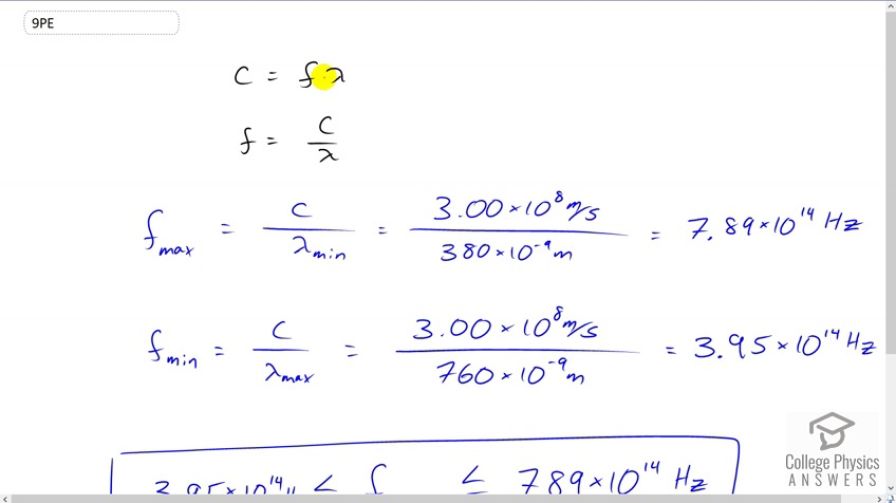 9PE
c = f·λ
f = c/λ
f_max = c/λ_min = 3.00×10⁸m/s / 380×10⁻⁹m = 7.89×10¹⁴ Hz
f_min = c/λ_max = 3.00×10⁸m/s / 760×10⁻⁹m = 3.95×10¹⁴ Hz
3.95×10¹⁴ ≤ f ≤ 789×10¹⁴ Hz
College Physics
ANSWERS